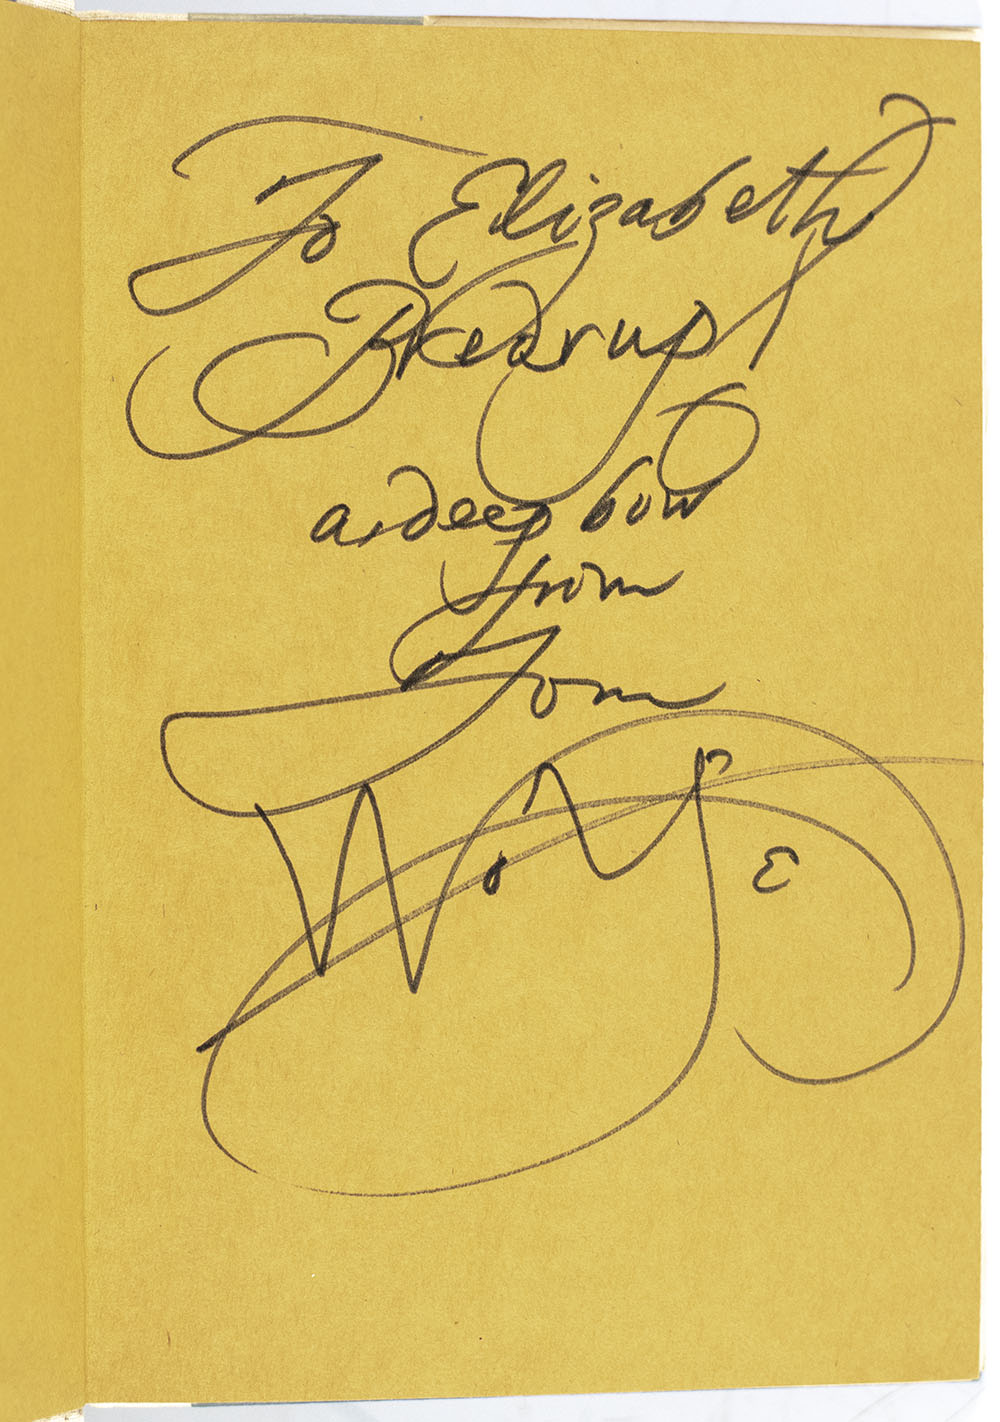 To Elizabeth
Bredrup
a deep bow
from
Tom
Wolfe